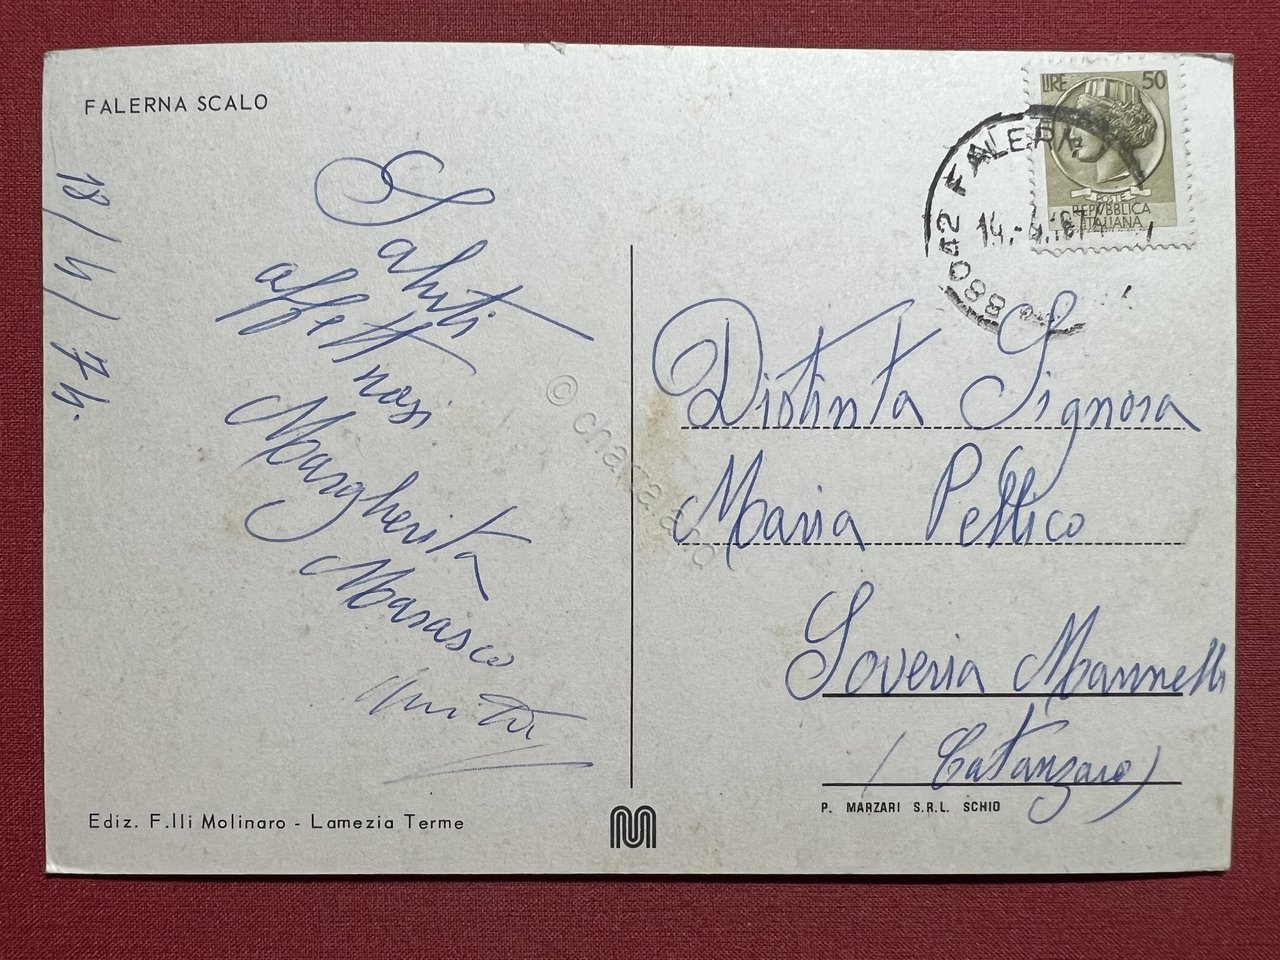 FALERNA SCALO
13/4/74.
Saluti
affettuosi
Margherita
Marasco
Ediz. F.lli Molinaro - Lamezia Terme
LIRE 50
POSTE
REPVBBLICA
ITALIANA
88042 FALERNA
14.-4.
Distinta Signora
Maria Pellico
Soveria Mannelli
(Catanzaro)
P. MARZARI S.R.L. SCHIO
© charta